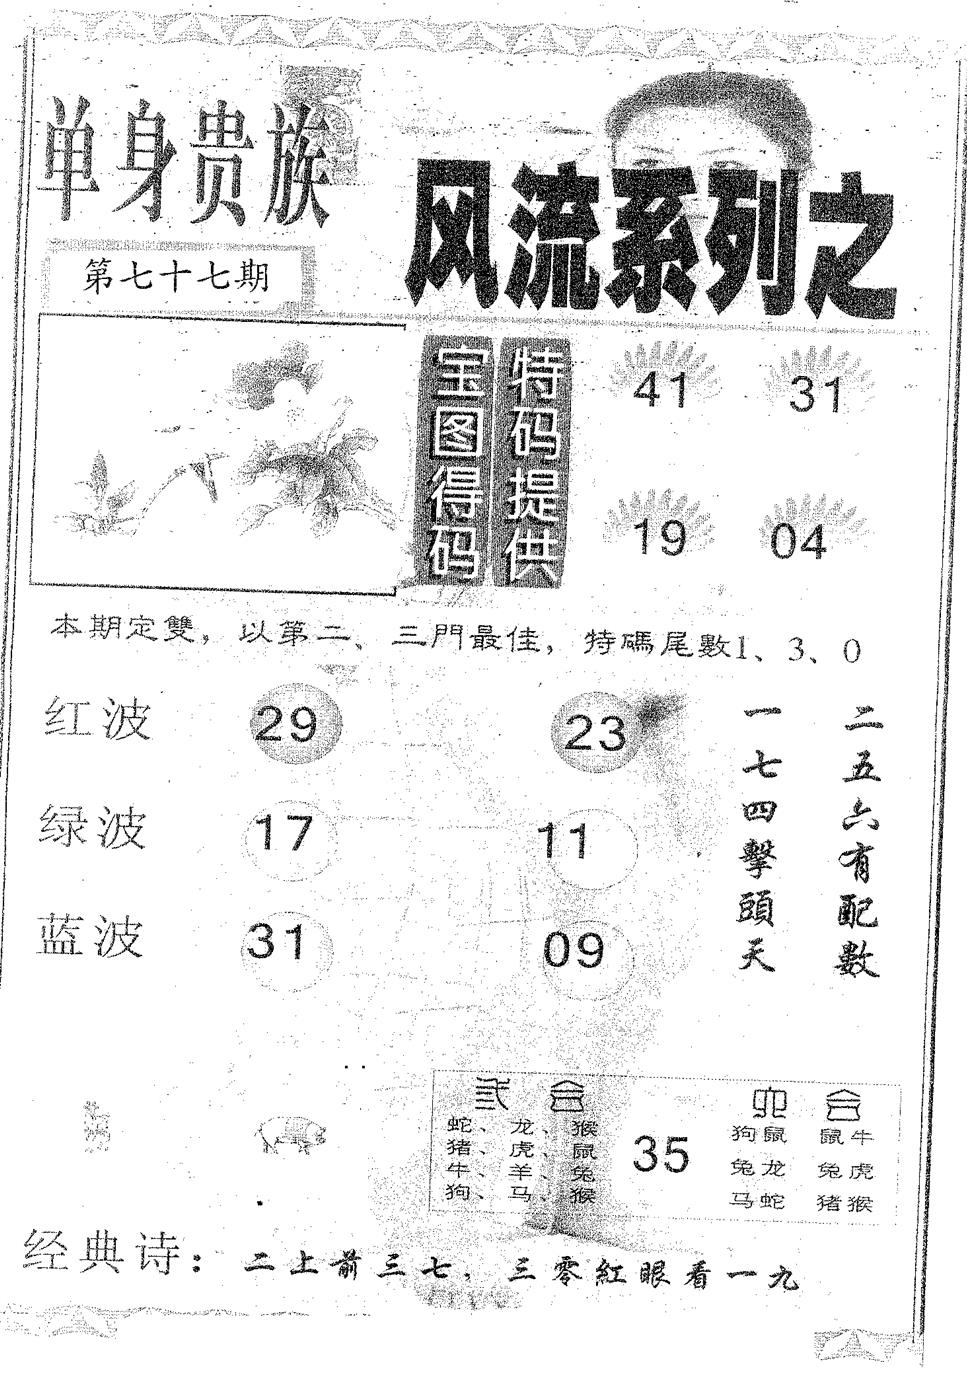 单身贵族
风流系列之
第七十七期
宝图得码
特码提供
41 31
19 04
本期定雙，以第二、三門最佳，特碼尾數1、3、0
红波 29 23
绿波 17 11
蓝波 31 09
二五六有配數
一七四擊頭天
合
蛇、龙、猴
猪、虎、鼠
牛、羊、兔
狗、马、猴
35
合
狗鼠 鼠牛
兔龙 兔虎
马蛇 猪猴
经典诗：二上前三七，三零紅眼看一九